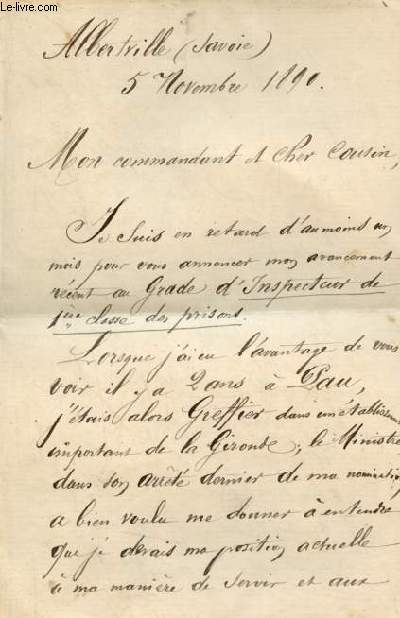 © Le-livre.com
Albertville (Savoie)
5 Novembre 1890.
Mon commandant et Cher Cousin,
Je suis en retard d'au moins un
mois pour vous annoncer mon avancement
récent au Grade d'Inspecteur de
1ère classe des prisons.
Lorsque j'ai eu l'avantage de vous
voir il y a 2 ans à Pau,
j'étais alors Greffier dans un établissemt
important de la Gironde; le Ministre
dans son arrêté dernier de ma nomination
a bien voulu me donner à entendre
que je devais ma position actuelle
à ma manière de servir et aux